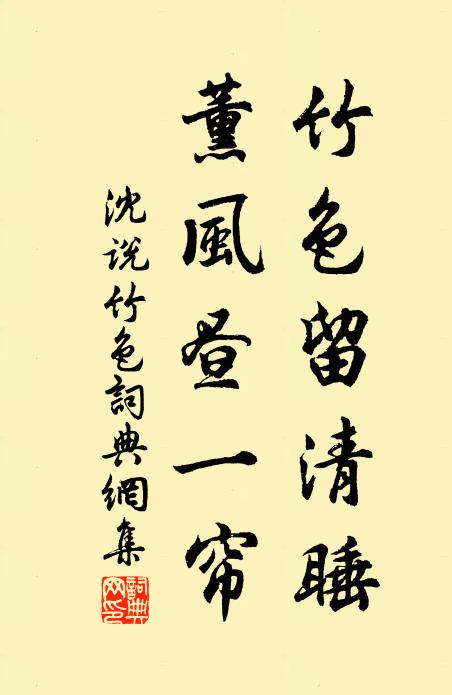 竹色留清睡
薰風昼一帘
沈说竹色詞典網集
詞典网印